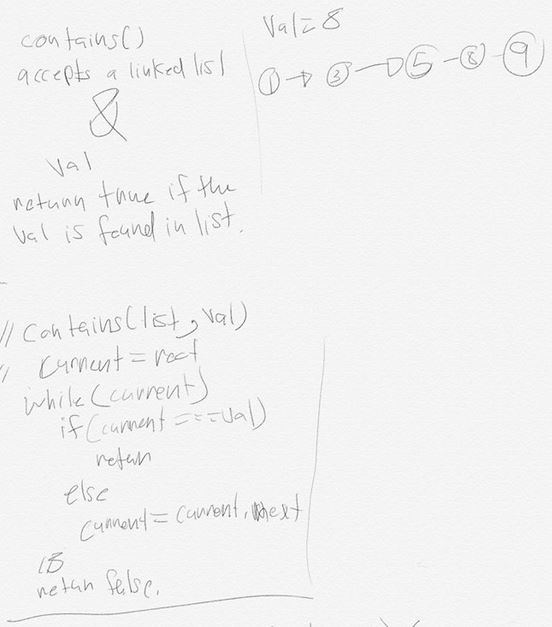 contains()
accepts a linked list
&
val
return true if the
val is found in list.
Val = 8
1 3 5 8 9
// contains(list, val)
// current = root
while (current)
if (current === val)
return
else
current = current.next
return false.